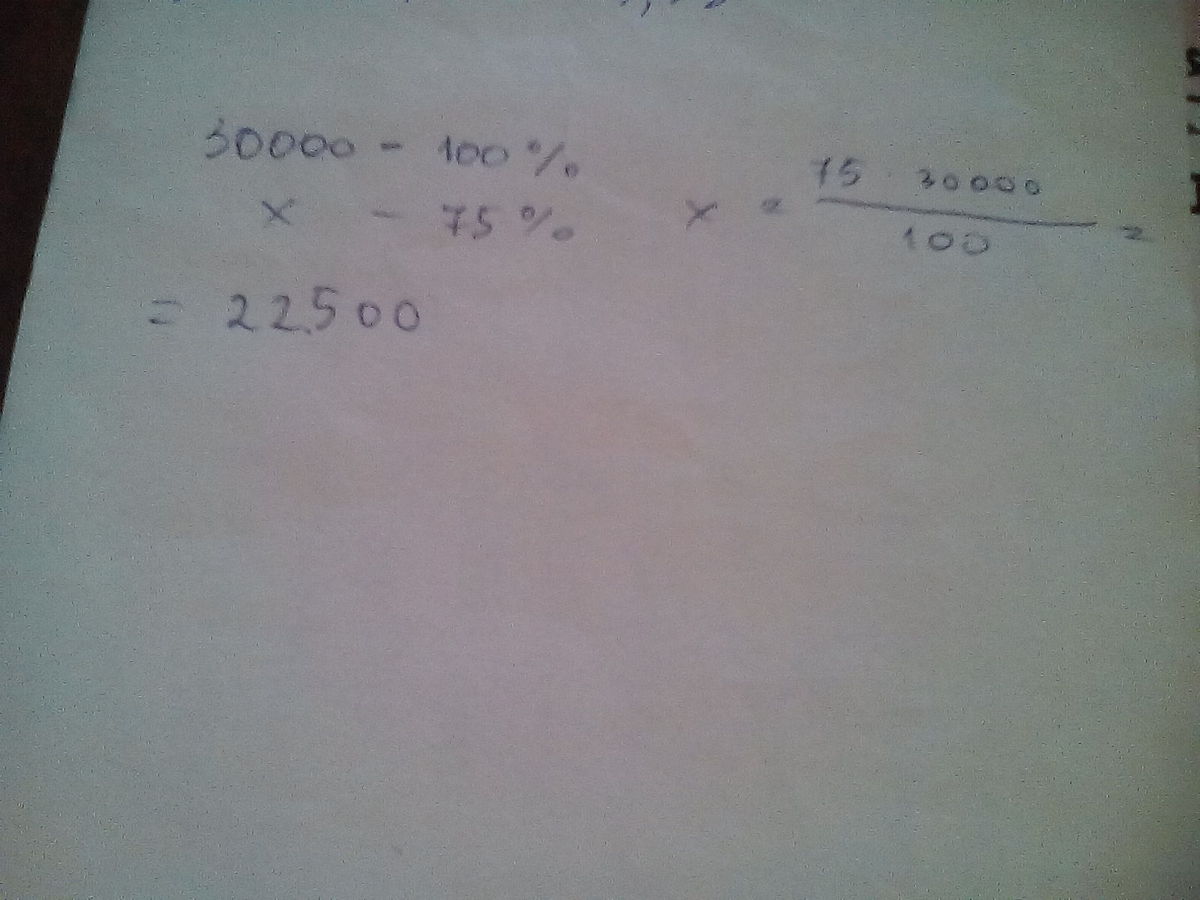 30000 - 100%
x - 75% x = 75 · 30000 / 100 =
= 22500